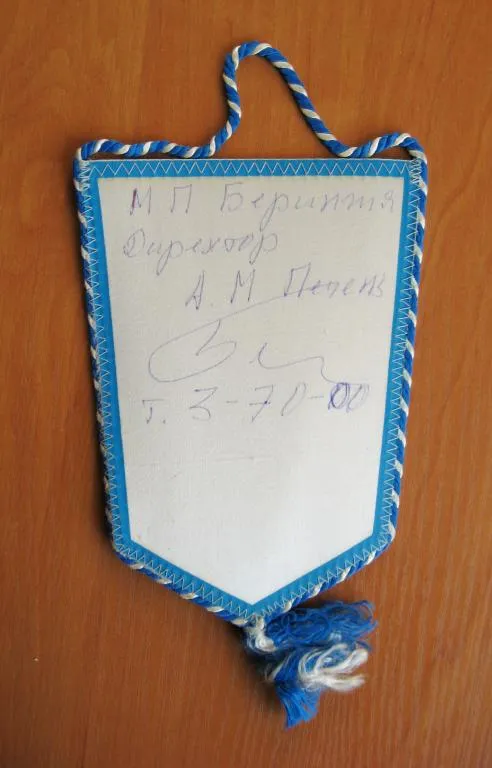 М П Беригтя
Директор
А. М Печень
т. 3-70-00